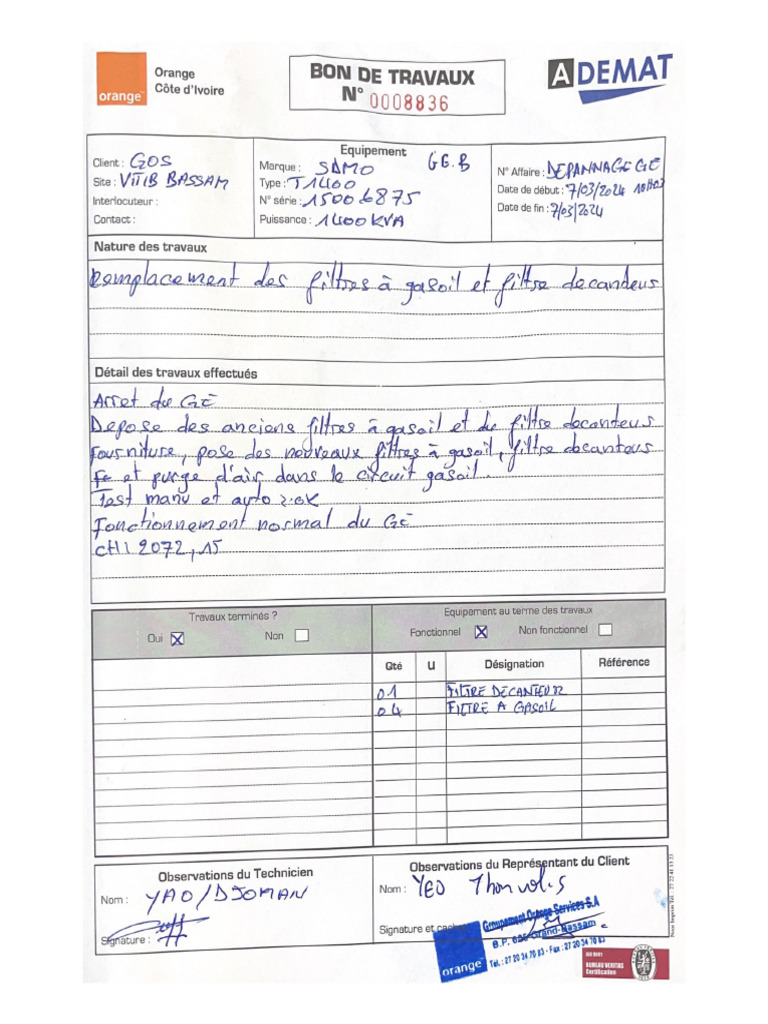 orange™
Orange
Côte d'Ivoire
BON DE TRAVAUX
N° 0008836
ADEMAT
Client : GOS
Site : VITIB BASSAM
Interlocuteur :
Contact :
Equipement
GG.B
Marque : SDMO
Type : T1400
N° série : 15006875
Puissance : 1400 KVA
N° Affaire : DEPANNAGE GE
Date de début : 7/03/2024 10H03
Date de fin : 7/03/2024
Nature des travaux
Remplacement des filtres à gasoil et filtre decanteur
Détail des travaux effectués
Arret du GE
Depose des anciens filtres à gasoil et du filtre decanteur
Fourniture, pose des nouveaux filtres à gasoil, filtre decanteur
et purge d'air dans le circuit gasoil.
Test manu et auto : ok
Fonctionnement normal du GE
CH : 2072,15
Travaux terminés ?
Oui X Non
Equipement au terme des travaux
Fonctionnel X Non fonctionnel
Qté U Désignation Référence
01 FILTRE DECANTEUR
04 FILTRE A GASOIL
Observations du Technicien
Nom : YAO/DJOMAN
Signature :
Observations du Représentant du Client
Nom : YEO
Signature et cachet
orange
Groupement Orange Services S.A
B.P. Grand-Bassam
Tél. : 27 20 34 70 83 - Fax : 27 20 34 70 83
ISO 9001
BUREAU VERITAS
Certification